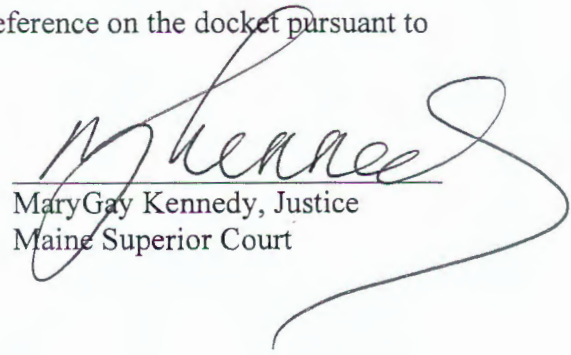 eference on the docket pursuant to
MKennedy
MaryGay Kennedy, Justice
Maine Superior Court